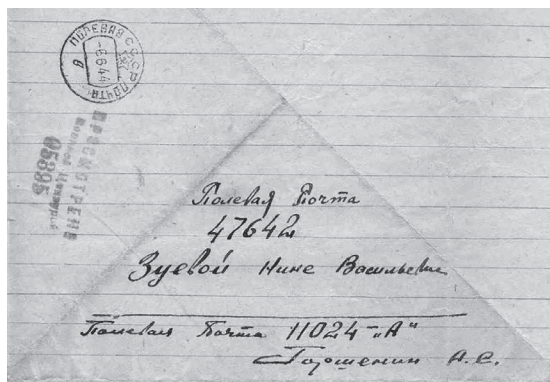 ПОЛЕВАЯ ПОЧТА
СССР
-6644
ПРОСМОТРЕНО
Военной Цензурой
05395
Полевая Почта
47642
Зуевой Нине Васильевне
Полевая Почта 11024-„А"
Горшенин А.С.